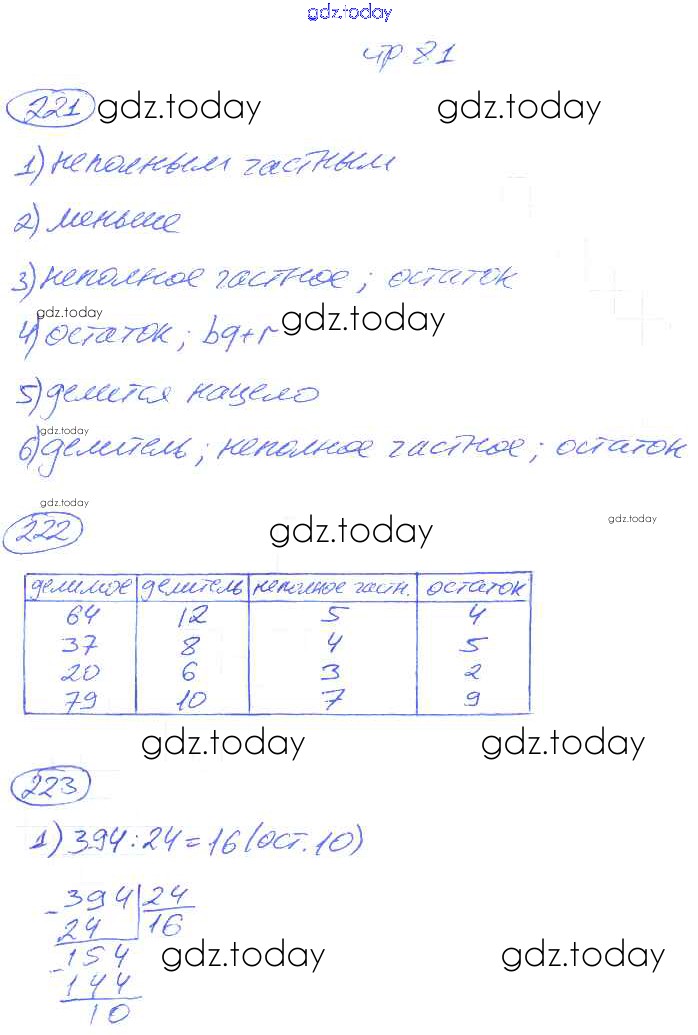 gdz.today
стр 81
221 gdz.today gdz.today
1) неполным частным
2) меньше
3) неполное частное; остаток
gdz.today gdz.today
4) остаток; bq+r
5) делится нацело
gdz.today
6) делитель; неполное частное; остаток
gdz.today
222 gdz.today gdz.today
делимое делитель неполное частн. остаток
64 12 5 4
37 8 4 5
20 6 3 2
79 10 7 9
gdz.today gdz.today
223
1) 394:24=16 (ост. 10)
- 394 24
24 16
gdz.today gdz.today
- 154
144
10